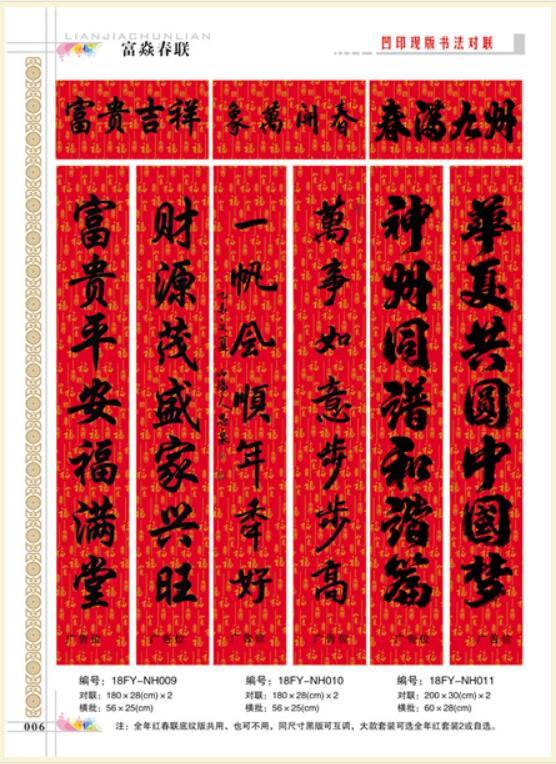 LIANJIACHUNLIAN
富焱春联
凹印现版书法对联
富贵吉祥
春開萬象
春满九州
富贵平安福满堂
财源茂盛家兴旺
一帆风順年年好
萬事如意步步高
神州同谱和谐篇
華夏共圆中國梦
广告位
广告位
广告位
广告位
广告位
广告位
编号：18FY-NH009
对联：180×28(cm)×2
横批：56×25(cm)
编号：18FY-NH010
对联：180×28(cm)×2
横批：56×25(cm)
编号：18FY-NH011
对联：200×30(cm)×2
横批：60×28(cm)
006
注：全年红春联底纹版共用、也可不用，同尺寸黑版可互调，大款套装可选全年红套装2或自选。